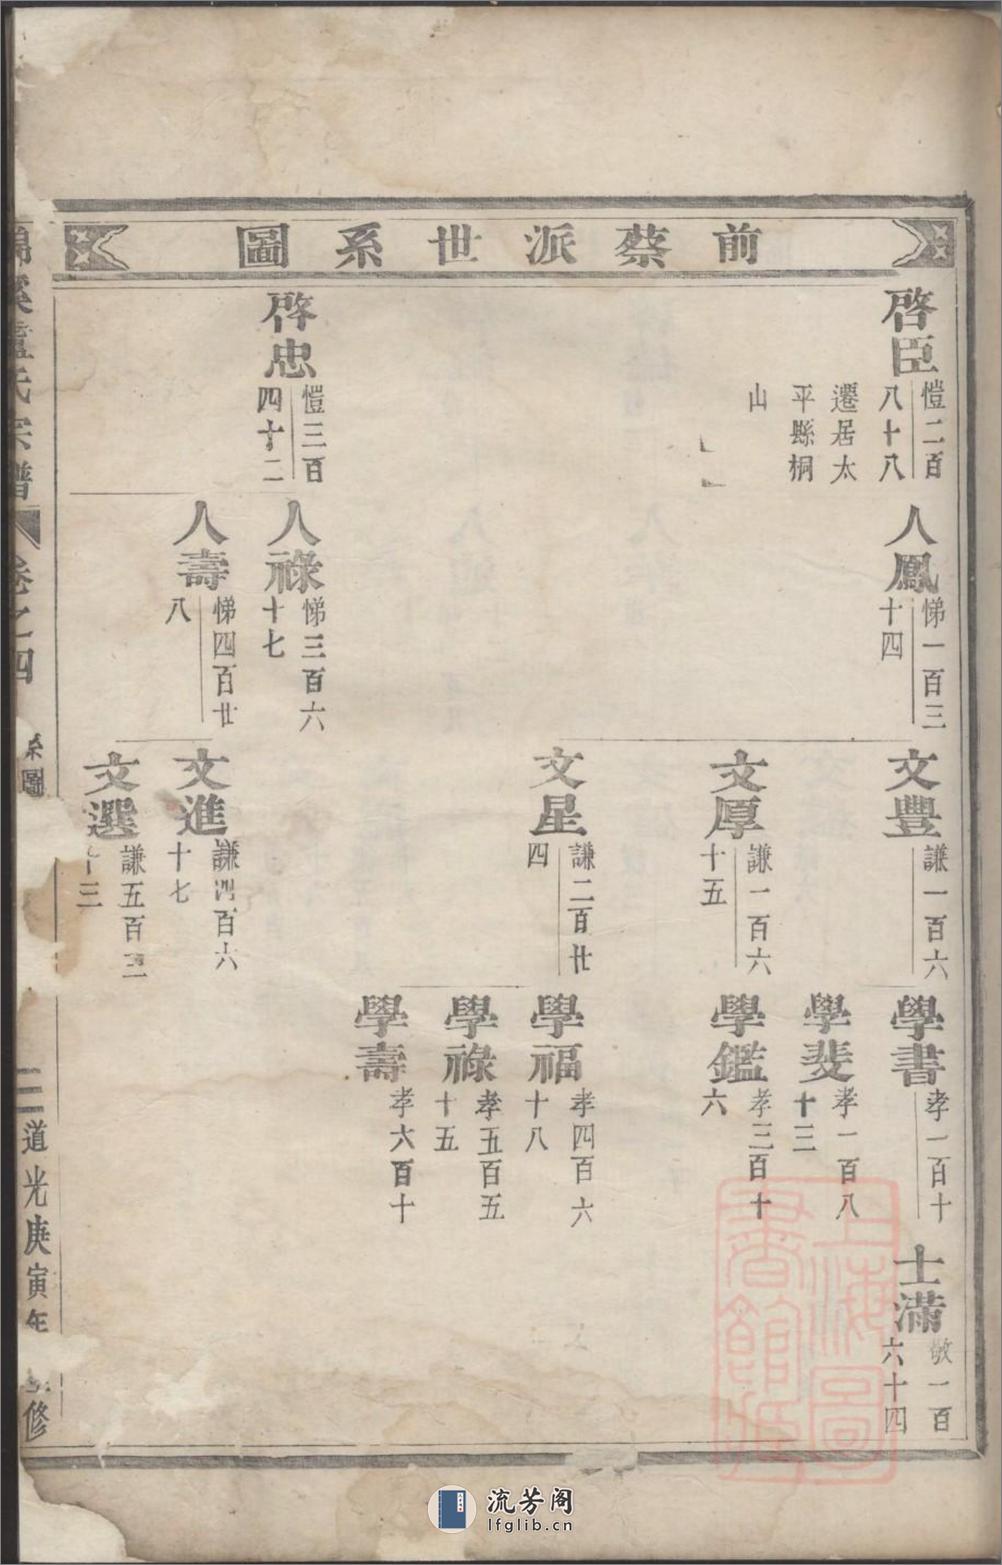 前蔡派世系圖
啓臣
愷二百
八十八
遷居太
平縣桐
山
啓忠
愷三百
四十二
人鳳
悌一百三
十四
人祿
悌三百六
十七
人壽
悌四百廿
八
文豐
謙一百六
文厚
謙一百六
十五
文星
謙二百廿
四
文進
謙四百六
十七
文選
謙五百
十三
學書
孝一百十
學斐
孝一百八
十三
學鑑
孝三百十
六
學福
孝四百六
十八
學祿
孝五百五
十五
學壽
孝六百十
士滿
敬一百
六十四
溪盧氏宗譜
卷之四
系圖
二
道光庚寅年
修
上海圖書館藏
流芳阁
lfglib.cn